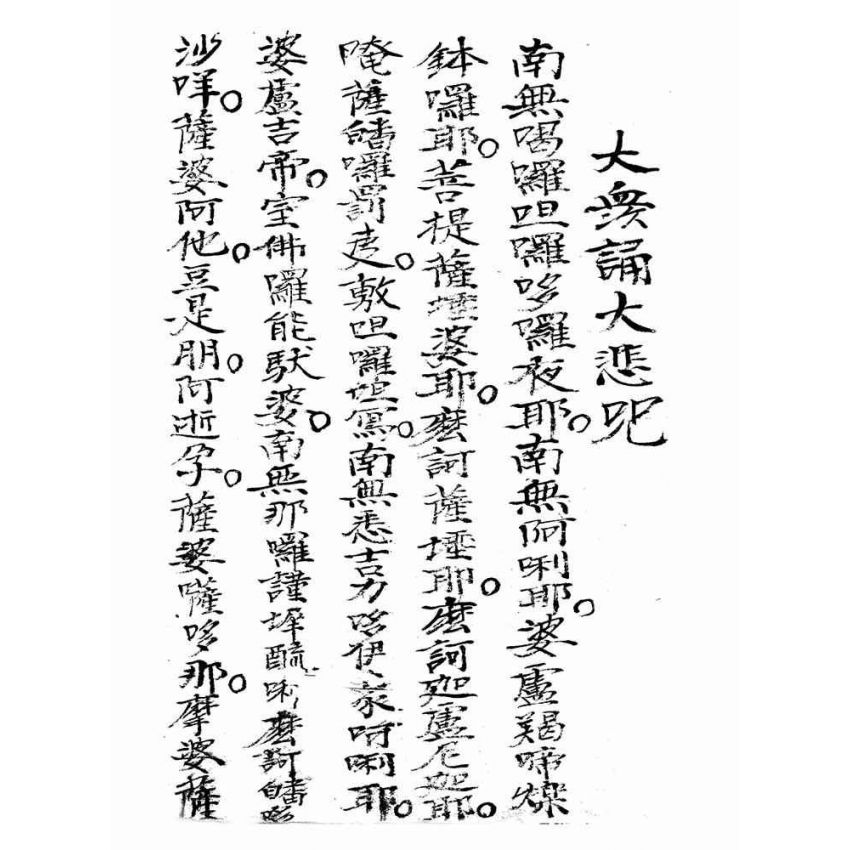 大衆誦大悲咒
南無喝囉呾囉哆囉夜耶。南無阿唎耶。婆盧羯啼爍
鉢囉耶。菩提薩埵婆耶。麼訶薩埵耶。麼訶迦盧尼迦耶。
唵薩皤囉罰曳。數呾囉怛寫。南無悉吉力哆伊蒙阿唎耶。
婆盧吉帝。室佛囉能馱婆。南無那囉謹墀醯唎麼訶皤哆
沙咩。薩婆阿他。豆是朋。阿逝孕。薩婆薩哆那。摩婆薩